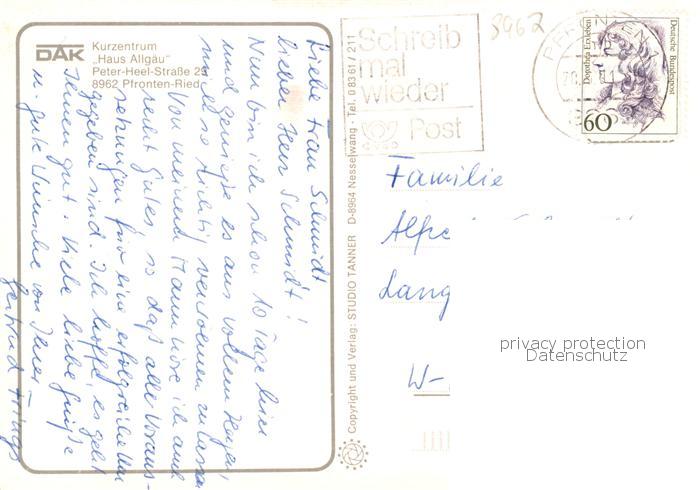 DAK
Kurzentrum
„Haus Allgäu“
Peter-Heel-Straße 29
8962 Pfronten-Ried
Liebe Frau Schmidt
lieber Herr Schmidt!
Nun bin ich schon 10 Tage hier
und genieße es aus vollem Herzen,
mich so richtig verwöhnen zu lassen.
Von meinem Mann höre ich auch
recht Gutes, so daß alle Voraus-
setzungen für eine erfolgreiche Kur
gegeben sind. Ich hoffe, es geht
Ihnen gut. Viele liebe Grüße
u. gute Wünsche von Ihrer
Gertrud Frings
Copyright und Verlag: STUDIO TANNER D-8964 Nesselwang · Tel. 0 83 61 / 211
Schreib
mal
wieder
Post
8962
PFRONTEN
Dorothea Erxleben
Deutsche Bundespost
60
Familie
Alfre
Lang
W-
privacy protection
Datenschutz